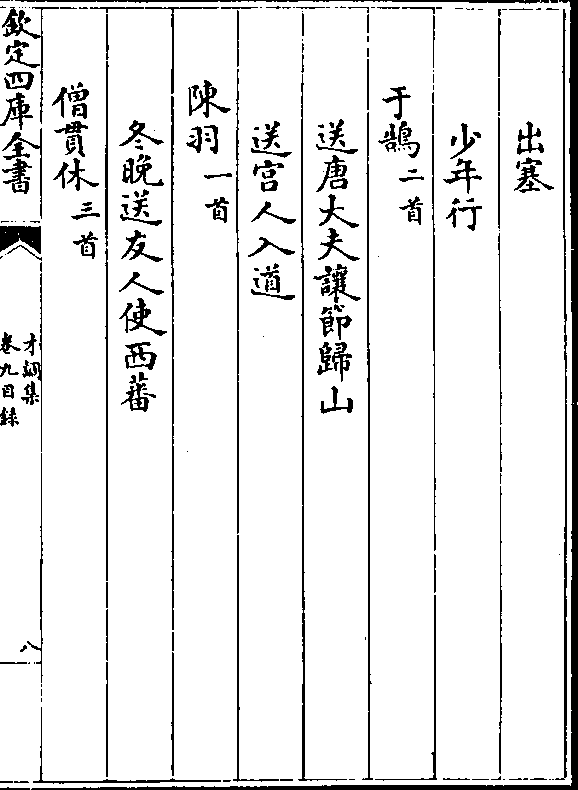 出塞
少年行
于鵠二首
送唐大夫讓節歸山
送宫人入道
陳羽一首
冬晚送友人使西蕃
僧貫休三首
欽定四庫全書
才調集
卷九目錄
八